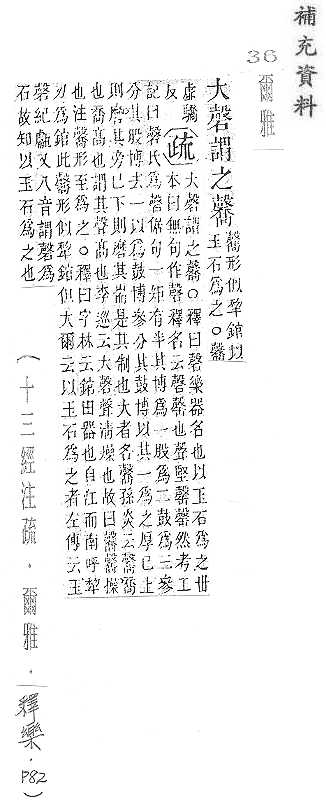 補充資料
36 爾雅
大磬謂之毊
毊形似犂錧以
玉石爲之○毊
虛驕
反
疏
大磬謂之毊○釋曰磬樂器名也以玉石爲之世
本曰無句作磬釋名云磬罄也聲堅罄罄然考工
記曰磬氏爲磬倨句一矩有半其博爲一股爲二鼓爲三參
分其股博去一以爲鼓博參分其鼓博以其一爲之厚已上
則磨其旁已下則磨其耑是其制也大者名毊孫炎云毊喬
也喬高也謂其聲高也李巡云大磬聲清燥也故曰毊毊燥
也注毊形至爲之○釋曰字林云錧田器也自江而南呼犂
刃爲錧此毊形似犂錧但大爾云以玉石爲之者左傳云玉
磬紀甗又八音謂磬爲
石故知以玉石爲之也
(十三經注疏.爾雅.釋樂.P82)